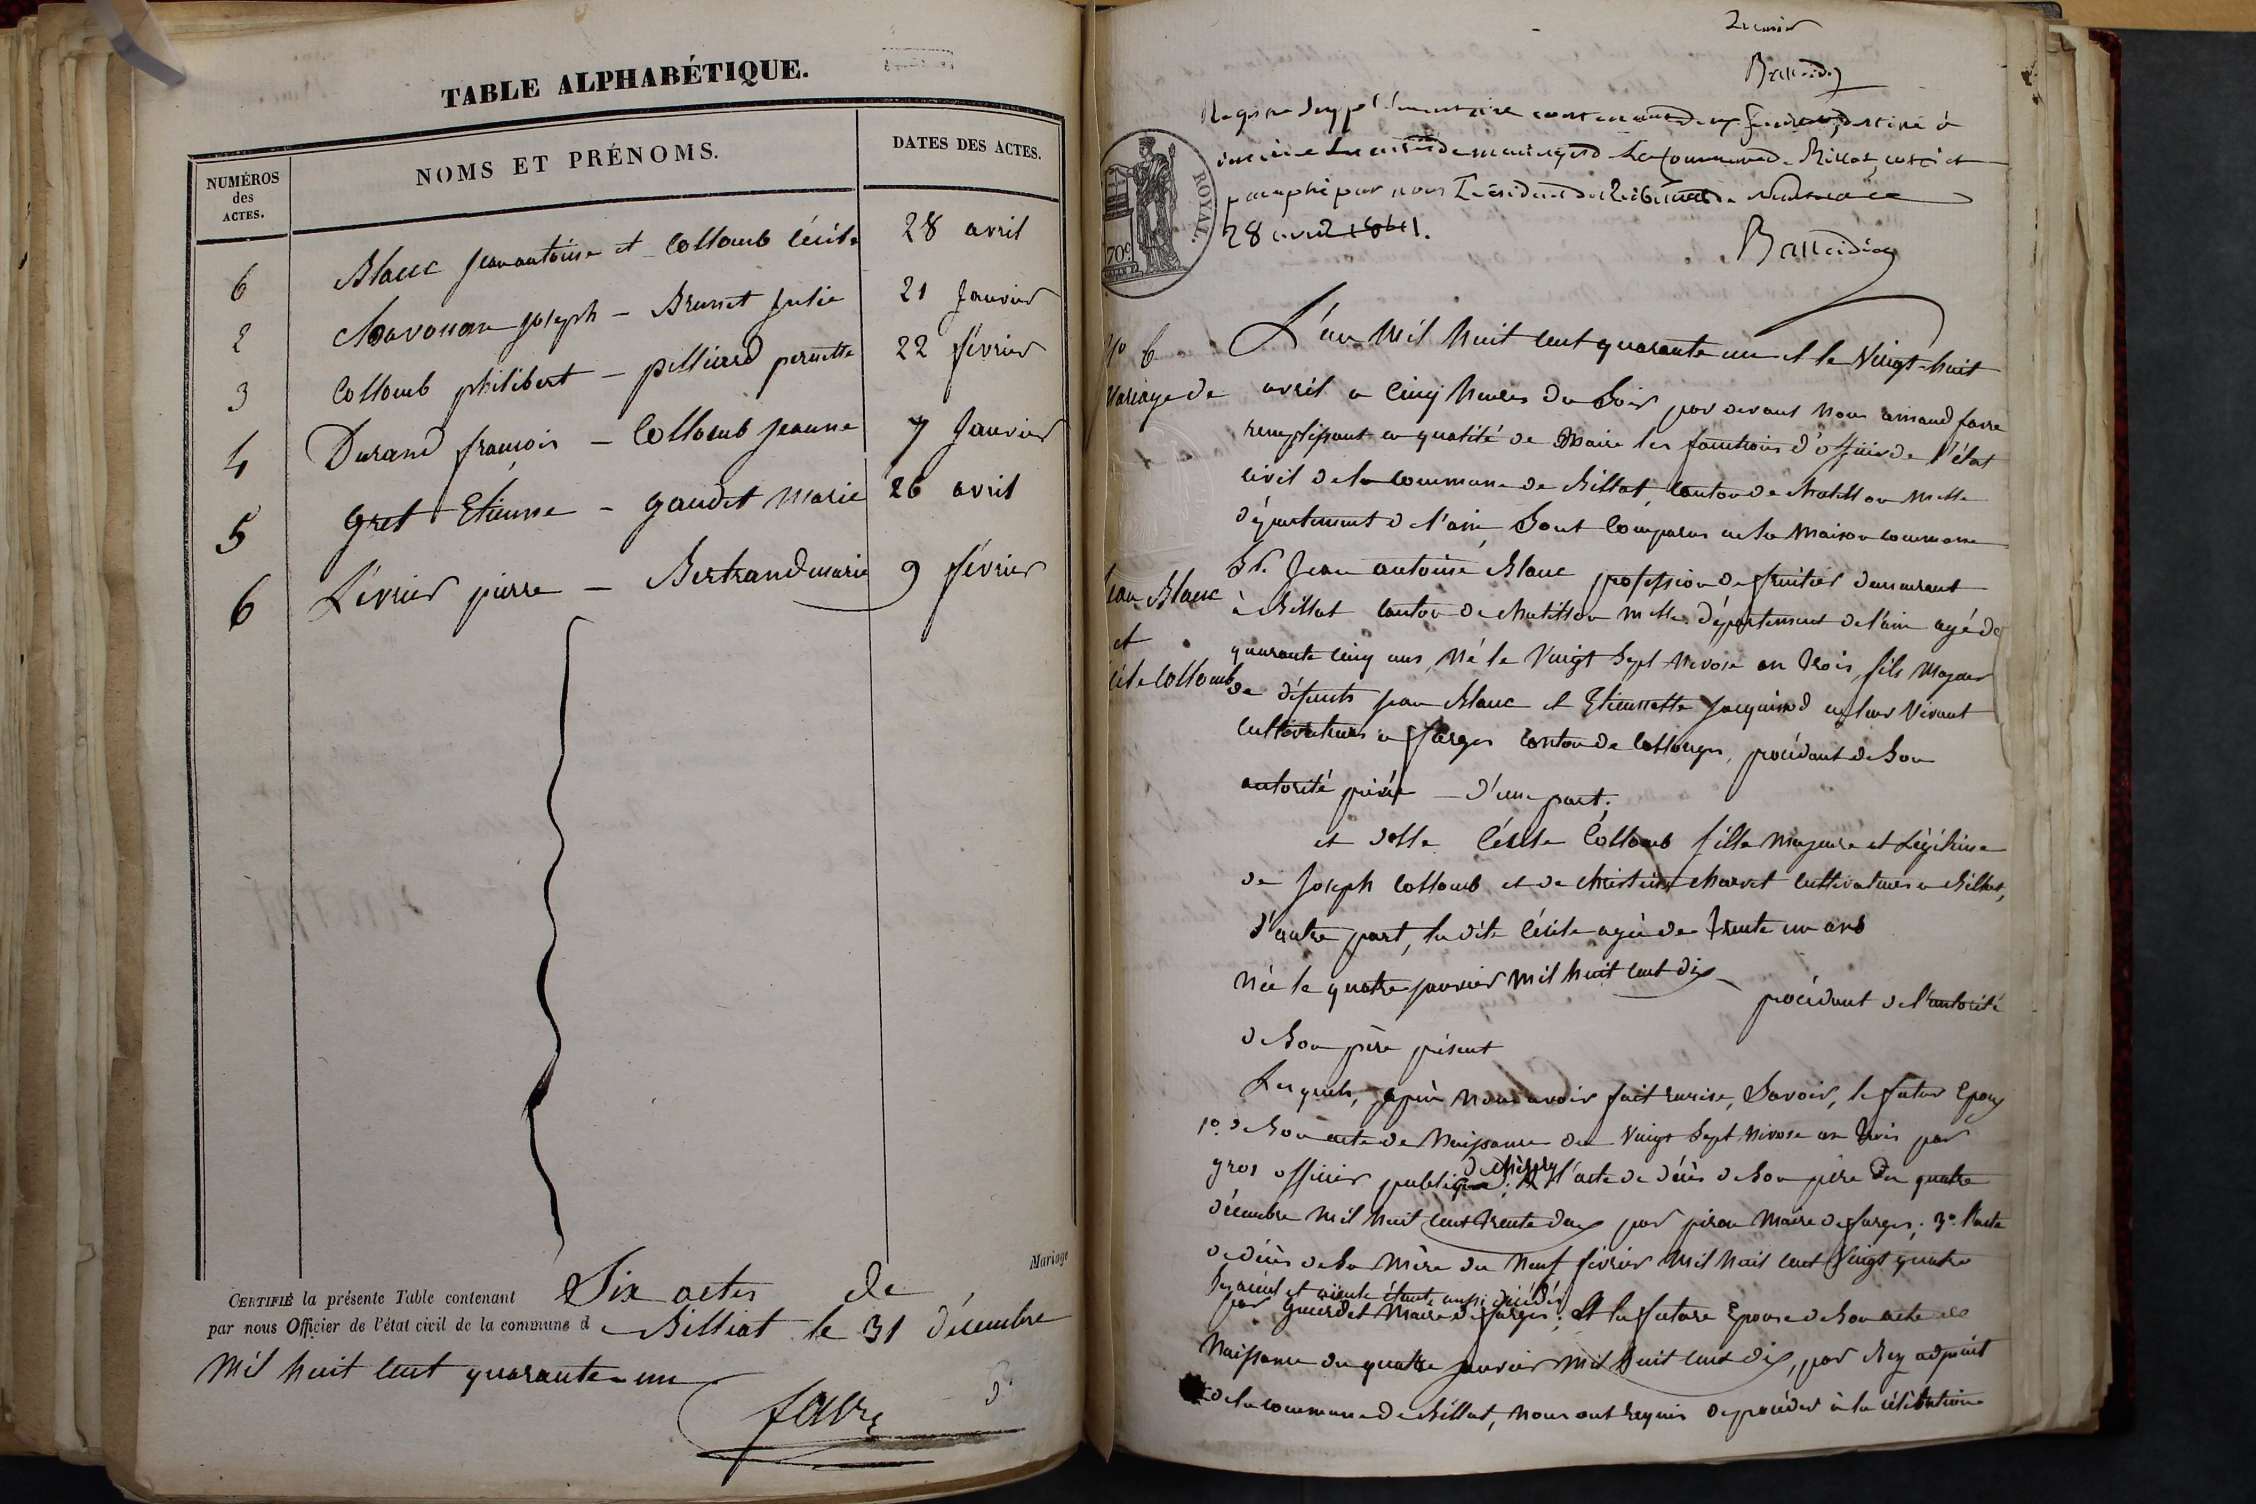 TABLE ALPHABÉTIQUE.
NUMÉROS des ACTES.
NOMS ET PRÉNOMS.
DATES DES ACTES.
6 Blanc jean antoine et Collomb Cécile 28 avril
2 joseph - Brunet julie 21 Janvier
3 Collomb philibert - pernette 22 février
4 Durand françois - Collomb jeanne 7 Janvier
5 gret Etienne - gaudet Marie 26 avril
6 Lévrier pierre - Bertrand marie 9 février
Mariage
CERTIFIÉ la présente Table contenant Six actes de
par nous Officier de l'état civil de la commune d Billiat le 31 décembre
Mil huit cent quarante-un
favre
Registre supplémentaire contenant deux destiné à
inscrire les actes de mariages de la Commune de Billat, coté et
paraphé par nous Président du Tribunal de Nantua ce
28 avril 1841.
ROYAL.
70c
No 6
Mariage de
Jean Blanc
et
Cécile Collomb
L'an Mil huit cent quarante un et le Vingt-huit
avril a Cinq heures du Soir par devant Nous armand favre
remplissant en qualité de Maire les fonctions d'officier de l'état
civil de la commune de Billat, canton de chatillon Mlle
département de l'ain, Sont Comparus en la Maison commune
Sr. Jean antoine Blanc profession de fruitier demeurant
à Billat canton de chatillon mlle. département de l'ain agé de
quarante cinq ans, Né le Vingt Sept Nivose an trois, fils Majeur
de défunts jean Blanc et Etiennette jacquinod en leur Vivant
cultivateurs a farges canton de Collonges, procédant de Son
autorité privée — d'une part.
et delle Cécile Collomb fille Majeure et Légitime
de Joseph Collomb et de christine charvet cultivateurs a Billat,
d'autre part, la dite Cécile agée de trente un ans
Née le quatre janvier Mil huit cent dix - procédant de l'autorité
de Son père présent
Lesquels, après Nous avoir fait remise, Savoir, le futur Epoux
1o. de Son acte de Naissance du Vingt Sept Nivose an trois par
gros officier public l'acte de décès de Son père du quatre
décembre Mil huit cent trente deux par Maire de farges; 3o l'acte
de décès de Sa Mère du Neuf février Mil huit cent Vingt quatre
Ses aieul et aieule étant aussi décédés
par Maire de farges; Et la future Epouse de Son acte de
Naissance du quatre janvier Mil huit cent dix, par Rey adjoint
de la commune de Billat, Nous ont requis de procéder à la célébration